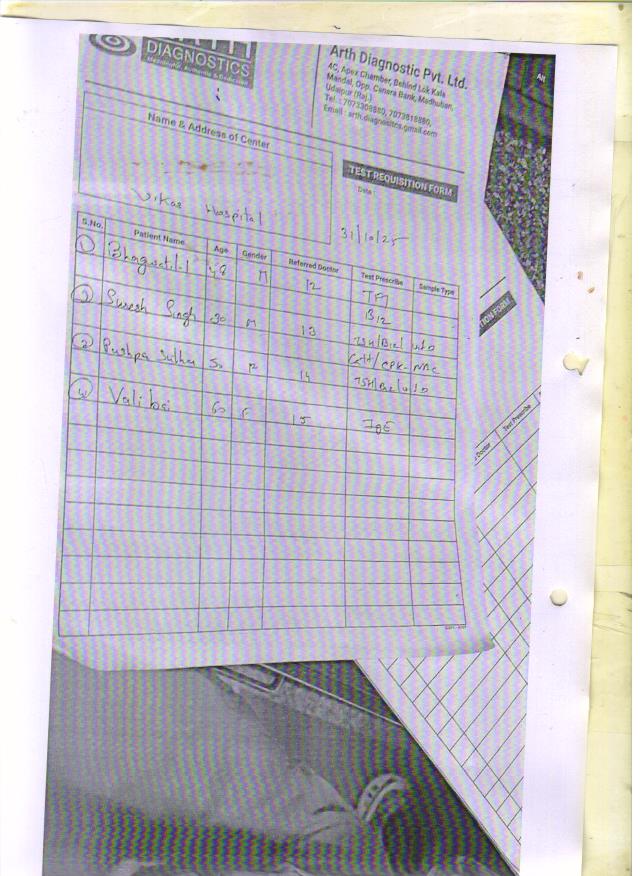 DIAGNOSTICS
Meaningful, Authentic & Dedicated
Arth Diagnostic Pvt. Ltd.
4C, Apex Chamber, Behind Lok Kala
Mandal, Opp. Canera Bank, Madhuban,
Udaipur (Raj.)
Tel.: 7073308880, 7073818880,
Email : arth.diagnositcs.gmail.com
Name & Address of Center
Vikas Hospital
TEST REQUISITION FORM
Date :
31/10/25
S.No. Patient Name Age Gender Referred Doctor Test Prescribe Sample Type
1 48 M 12
B12
3 Suresh Singh 30 M 13 TSH/B12/
2 Pushpa 50 F 14
TSH/B12/
4 Vali bai 60 F 15 IgE
TION FORM
Doctor Test Prescribe